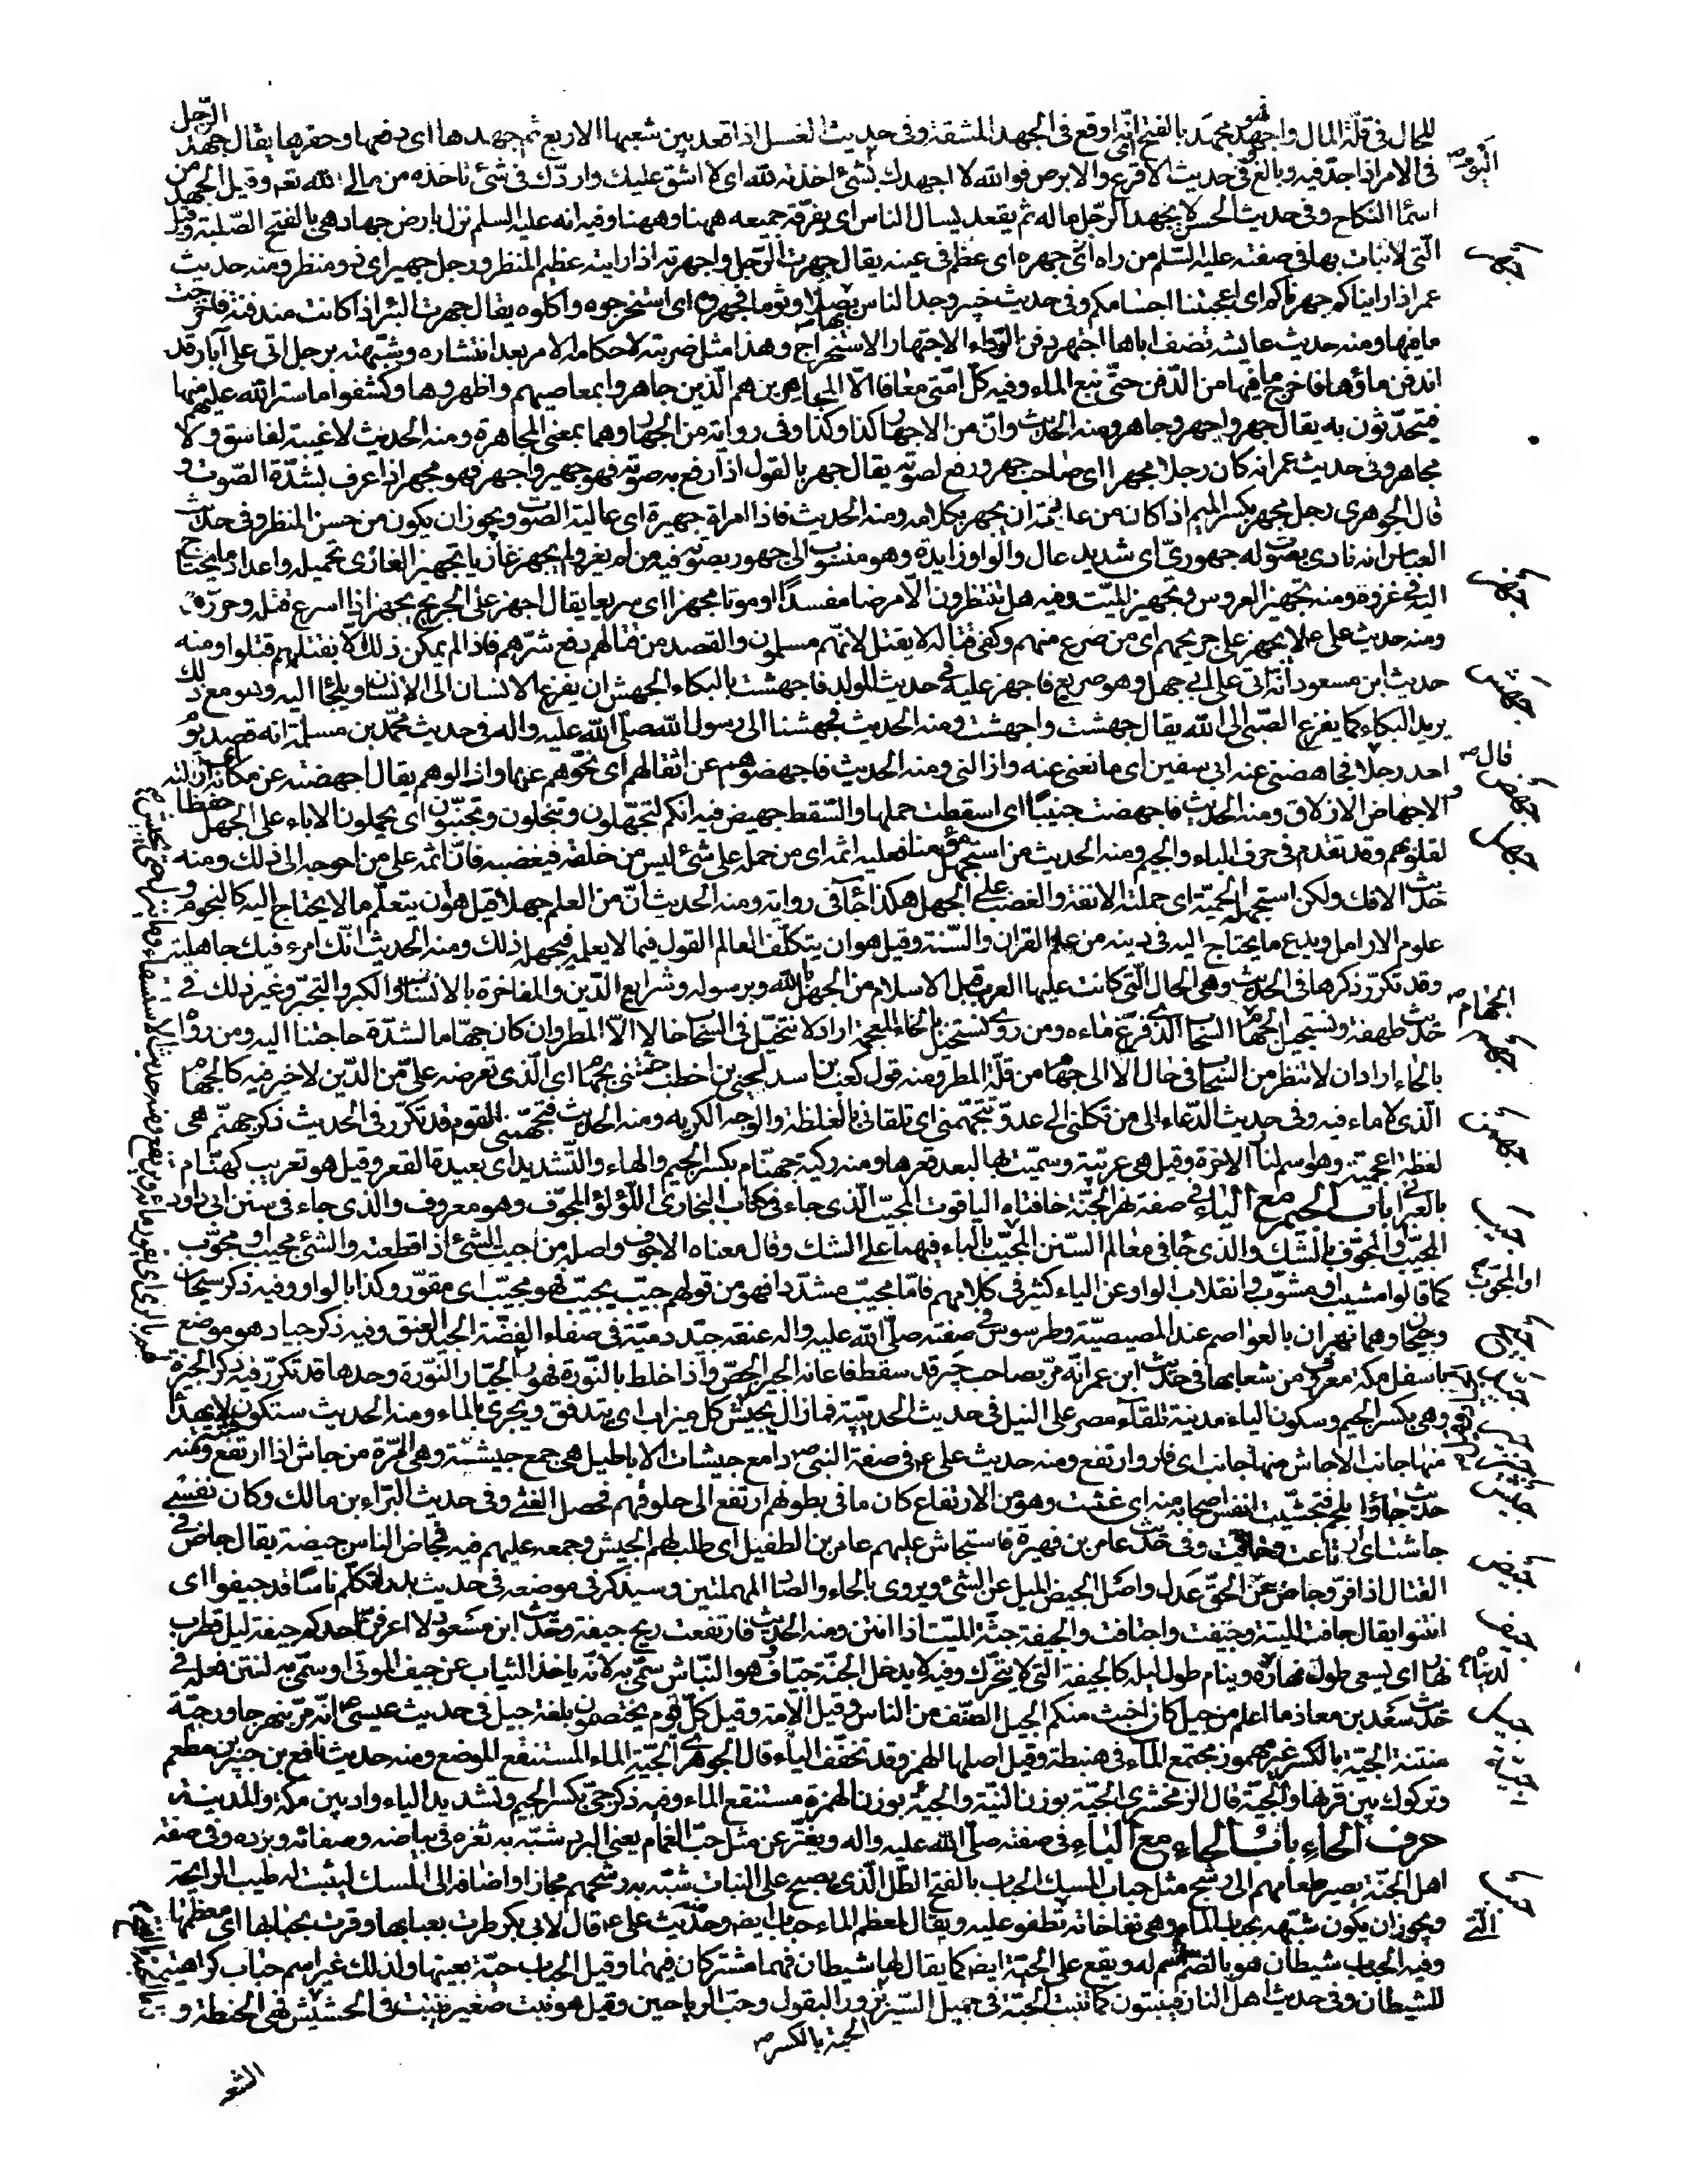 للحال في قلة المال واجهد فهو مجهد بالفتح اى انه اوقع في الجهد المشقة وفي حديث الغسل اذا قعد بين شعبها الاربع ثم جهدها اى دفعها وحفزها يقال جهد الرجل
في الامر اذا جد فيه وبالغ وفي حديث الاقرع والابرص فوالله لا اجهدك بشئ اخذته لله اى لا اشق عليك واردك في شئ تاخذه من مالي لله تعم وقيل الجهد من
اسماء النكاح وفي حديث الحسن لا يجهد الرجل ماله ثم يقعد يسال الناس اى يفرقه جميعه ههنا وههنا وفيه انه عليه السلم نزل بارض جهاد هي بالفتح الصلبة وقيل
التي لا نبات بها في صفته عليه السلم من راه جهره اى عظم في عينه يقال جهرت الرجل واجهرته اذا رايته عظيم المنظر ورجل جهير اى ذو منظر ومنه حديث
عمر اذا رايناكم جهرناكم اى اعجبتنا اجسامكم وفي حديث خيبر وجد الناس بها بصلا وثوما فجهروه اى استخرجوه واكلوه يقال جهرت البئر اذا كانت مندفنة فاخرجت
ما فيها ومنه حديث عايشه تصف اباها اجتهر دفن الرواء الاجتهار الاستخراج وهذا مثل ضربته لاحكامه الامر بعد انتشاره وشبهته برجل اتى على آبار قد
اندفن ماؤها فاخرج ما فيها من الدفن حتى نبع الماء وفيه كل امتي معافا الا المجاهرين هم الذين جاهروا بمعاصيهم واظهروها وكشفوا ما ستر الله عليهم منها
فيتحدثون به يقال جهر واجهر وجاهر ومنه الحديث وان من الاجهار كذا وكذا وفي رواية من الجهار وهما بمعنى المجاهرة ومنه الحديث لا غيبة لفاسق ولا
مجاهر وفي حديث عمر انه كان رجلا مجهرا اى صاحب جهر ورفع لصوته يقال جهر بالقول اذا رفع به صوته فهو جهير واجهر فهو مجهر اذا عرف بشدة الصوت و
قال الجوهري رجل مجهر بكسر الميم اذا كان من عادته ان يجهر بكلامه ومنه الحديث فاذا امراة جهيرة اى عالية الصوت ويجوز ان يكون من حسن المنظر وفي حديث
العباس انه نادى بصوت له جهوري اى شديد عال والواو زايدة وهو منسوب الى جهور بصوته فيه من لم يغز ولم يجهز غازيا تجهيز الغازي تحميله واعداد ما يحتاج
اليه في غزوه ومنه تجهيز العروس وتجهيز الميت وفيه هل تنتظرون الا مرضا مفسدا او موتا مجهزا اى سريعا يقال اجهز على الجريح يجهز اذا اسرع قتله وحرره
ومنه حديث علي ع لا يجهز على جريحهم اى من صرع منهم وكفي قتاله لا يقتل لانهم مسلمون والقصد من قتالهم دفع شرهم فاذا لم يمكن ذلك الا بقتلهم قتلوا ومنه
حديث ابن مسعود انه اتى على ابي جهل وهو صريع فاجهز عليه في حديث المولد فاجهشت بالبكاء الجهش ان يفزع الانسان الى الانسان ويلجا اليه وهو مع ذلك
يريد البكاء كما يفزع الصبي الى الله يقال جهشت واجهشت ومنه الحديث فجهشنا الى رسول الله صلى الله عليه واله في حديث محمد بن مسلمة انه قصد يوم
احد رجلا قال فجاهضني عنه ابي سفين اى مانعني عنه وازالني ومنه الحديث فاجهضوهم عن اثقالهم اى نحوهم عنها وازالوهم يقال اجهضته عن مكانه اى ازلته
والاجهاض الازلاق ومنه الحديث فاجهضت جنينا اى اسقطت حملها والسقط جهيض فيه انكم لتجهلون وتبخلون وتجبنون اى يحملون الاباء على الجهل حفظا
لقلوبهم وقد تقدم في حرف الباء والجيم ومنه الحديث من استجهل مؤمنا فعليه اثمه اى من حمله على شئ ليس من خلقه فيغضبه فان اثمه على من احوجه الى ذلك ومنه
حديث الافك ولكن استجهلته الحمية اى حملته الانفة والغضب على الجهل هكذا جاء في رواية ومنه الحديث ان من العلم جهلا قيل هو ان يتعلم ما لا يحتاج اليه كالنجوم و
علوم الاوايل ويدع ما يحتاج اليه في دينه من علم القران والسنة وقيل هو ان يتكلف العالم القول فيما لا يعلمه فيجهله ذلك ومنه الحديث انك امرء فيك جاهلية
وقد تكرر ذكرها في الحديث وهي الحال التي كانت عليها العرب قبل الاسلام من الجهل بالله وبرسوله وشرايع الدين والمفاخرة بالانساب والكبر والتجبر وغير ذلك في
حديث طهفة ونستحيل الجهام الجهام السحاب الذي فرغ ماءه ومن روى نستخيل بالخاء المعجمة اراد لا نتخيل في السحاب خالا الا المطر وان كان جهاما لشدة حاجتنا اليه ومن رواه
بالحاء اراد ان لا ننظر من السحاب في حال الا الى جهام من قلة المطر ومنه قول كعب بن اسد لحيي بن اخطب جئتني بجهام اى الذي تعرضه علي من الدين لا خير فيه كالجهام
الذي لا ماء فيه وفي حديث الدعاء الى من تكلني الى عدو يتجهمني اى تلقاني بالغلظة والوجه الكريه ومنه الحديث فتجهمني القوم قد تكرر في الحديث ذكر جهنم هي
لفظة اعجمية وهو اسم لنار الاخرة وقيل هي عربية وسميت بها لبعد قعرها ومنه ركية جهنام بكسر الجيم والهاء والتشديد اى بعيدة القعر وقيل هو تعريب كهنام
بالعبراني باب الجيم مع الياء في صفة نهر الجنة حافتاه الياقوت المجيب الذي جاء في كتاب البخاري اللؤلؤ المجوف وهو معروف والذي جاء في سنن ابي داود
المجيب او المجوف بالشك والذي جاء في معالم السنن المجيب او المجوب بالباء فيهما على الشك وقال معناه الاجوف واصله من جبت الشئ اذا قطعته والشئ مجيب او مجوب
كما قالوا مشيب او مشوب وانقلاب الواو عن الياء كثير في كلامهم فاما مجيب مشددا فهو من قولهم جيب يجيب فهو مجيب اى مقور وكذا بالواو وفيه ذكر سيحان
وجيحان وهما نهران بالعواصم عند المصيصة وطرسوس في صفته صلى الله عليه واله عنقه جيد دمية في صفاء الفضة الجيد العنق وفيه ذكر جياد هو موضع
باسفل مكه معروف من شعابها في حديث ابن عمر انه مر بصاحب جير قد سقط فاعانه الجير الجص واذا خلط بالنورة فهو الجيار وقيل الجيار النورة وحدها قد تكرر فيه ذكر الجيزة
وهي بكسر الجيم وسكون الياء مدينة تلقاء مصر على النيل في حديث الحديبية فما زال يجيش لهم بالري اى يتدفق ويجري بالماء ومنه الحديث ستكون فتنة لا يهدا
منها جانب الا جاش منها جانب اى فار وارتفع ومنه حديث علي ع في صفة النبي ص دامغ جيشات الاباطيل هي جمع جيشة وهي المرة من جاش اذا ارتفع ومنه
حديث جاؤا بلحم فتجيشت انفس اصحابه منه اى غثت وهو من الارتفاع كان ما في بطونهم ارتفع الى حلوقهم فحصل الغثي وفي حديث البراء بن مالك وكان نفسي
جاشت اى ارتاعت وخافت وفي حديث عامر بن فهيرة فاستجاش عليهم عامر بن الطفيل اى طلب لهم الجيش وجمعه عليهم فيه فجاض الناس جيضة يقال جاض في
القتال اذا فر وجاض عن الحق عدل واصل الجيض الميل عن الشئ ويروى بالحاء والصاد المهملتين وسيذكر في موضعه في حديث بدر اتكلم ناسا قد جيفوا اى
انتنوا يقال جافت الميتة وجيفت واجتافت والجيفة جثة الميت اذا انتن ومنه الحديث فارتفعت ريح جيفة وحديث ابن مسعود لا اعرفن احدكم جيفة ليل قطرب
نهار اى يسعى طول نهاره لدنياه وينام طول ليله كالجيفة التي لا يتحرك وفيه لا يدخل الجنة جياف هو النباش سمي به لانه ياخذ الثياب عن جيف الموتى او سمي به لنتن فعله في
حديث سعد بن معاذ ما اعلم من جيل كان اخبث منكم الجيل الصنف من الناس وقيل الامة وقيل كل قوم يختصون بلغة جيل في حديث عيسى ع انه مر بنهر جاور جية
منتنة الجية بالكسر غير مهموز مجتمع الماء في هبطة وقيل اصلها الهمز وقد تخفف الياء قال الجوهري الجية الماء المستنقع الموضع ومنه حديث نافع بن جبير بن مطعم
وتركوك بين قرنها والجية قال الزمخشري الجية بوزن النية والجية بوزن الهمزة مستنقع الماء وفيه ذكر جي بكسر الجيم وتشديد الياء واد بين مكة والمدينة
حرف الحاء باب الحاء مع الباء في صفته صلى الله عليه واله ويفتر عن مثل حب الغمام يعني البرد شبه به ثغره في بياضه وصفائه وبرده وفي صفة
اهل الجنة يصير طعامهم الى رشح مثل حباب المسك الحباب بالفتح الطل الذي يصبح على النبات شبه به رشحهم مجازا واضافه الى المسك ليثبت له طيب الرايحة
ويجوز ان يكون شبهه بحباب الماء وهي نفاخاته التي تطفو عليه ويقال لمعظم الماء حباب ايضا وحديث علي ع قال لابي بكر طرت بعبابها وفزت بحبابها اى معظمها
وفيه الحباب شيطان هو بالضم اسم له ويقع على الحية ايضا كما يقال لها شيطان فهما مشتركان فيهما وقيل الحباب حية بعينها ولذلك غير اسم حباب كراهية
للشيطان وفي حديث اهل النار فينبتون كما تنبت الحبة في حميل السيل بزور البقول وحب الرياحين وقيل هو نبت صغير ينبت في الحشيش فهي الحنطة و
الحبة بالكسر
الشعير